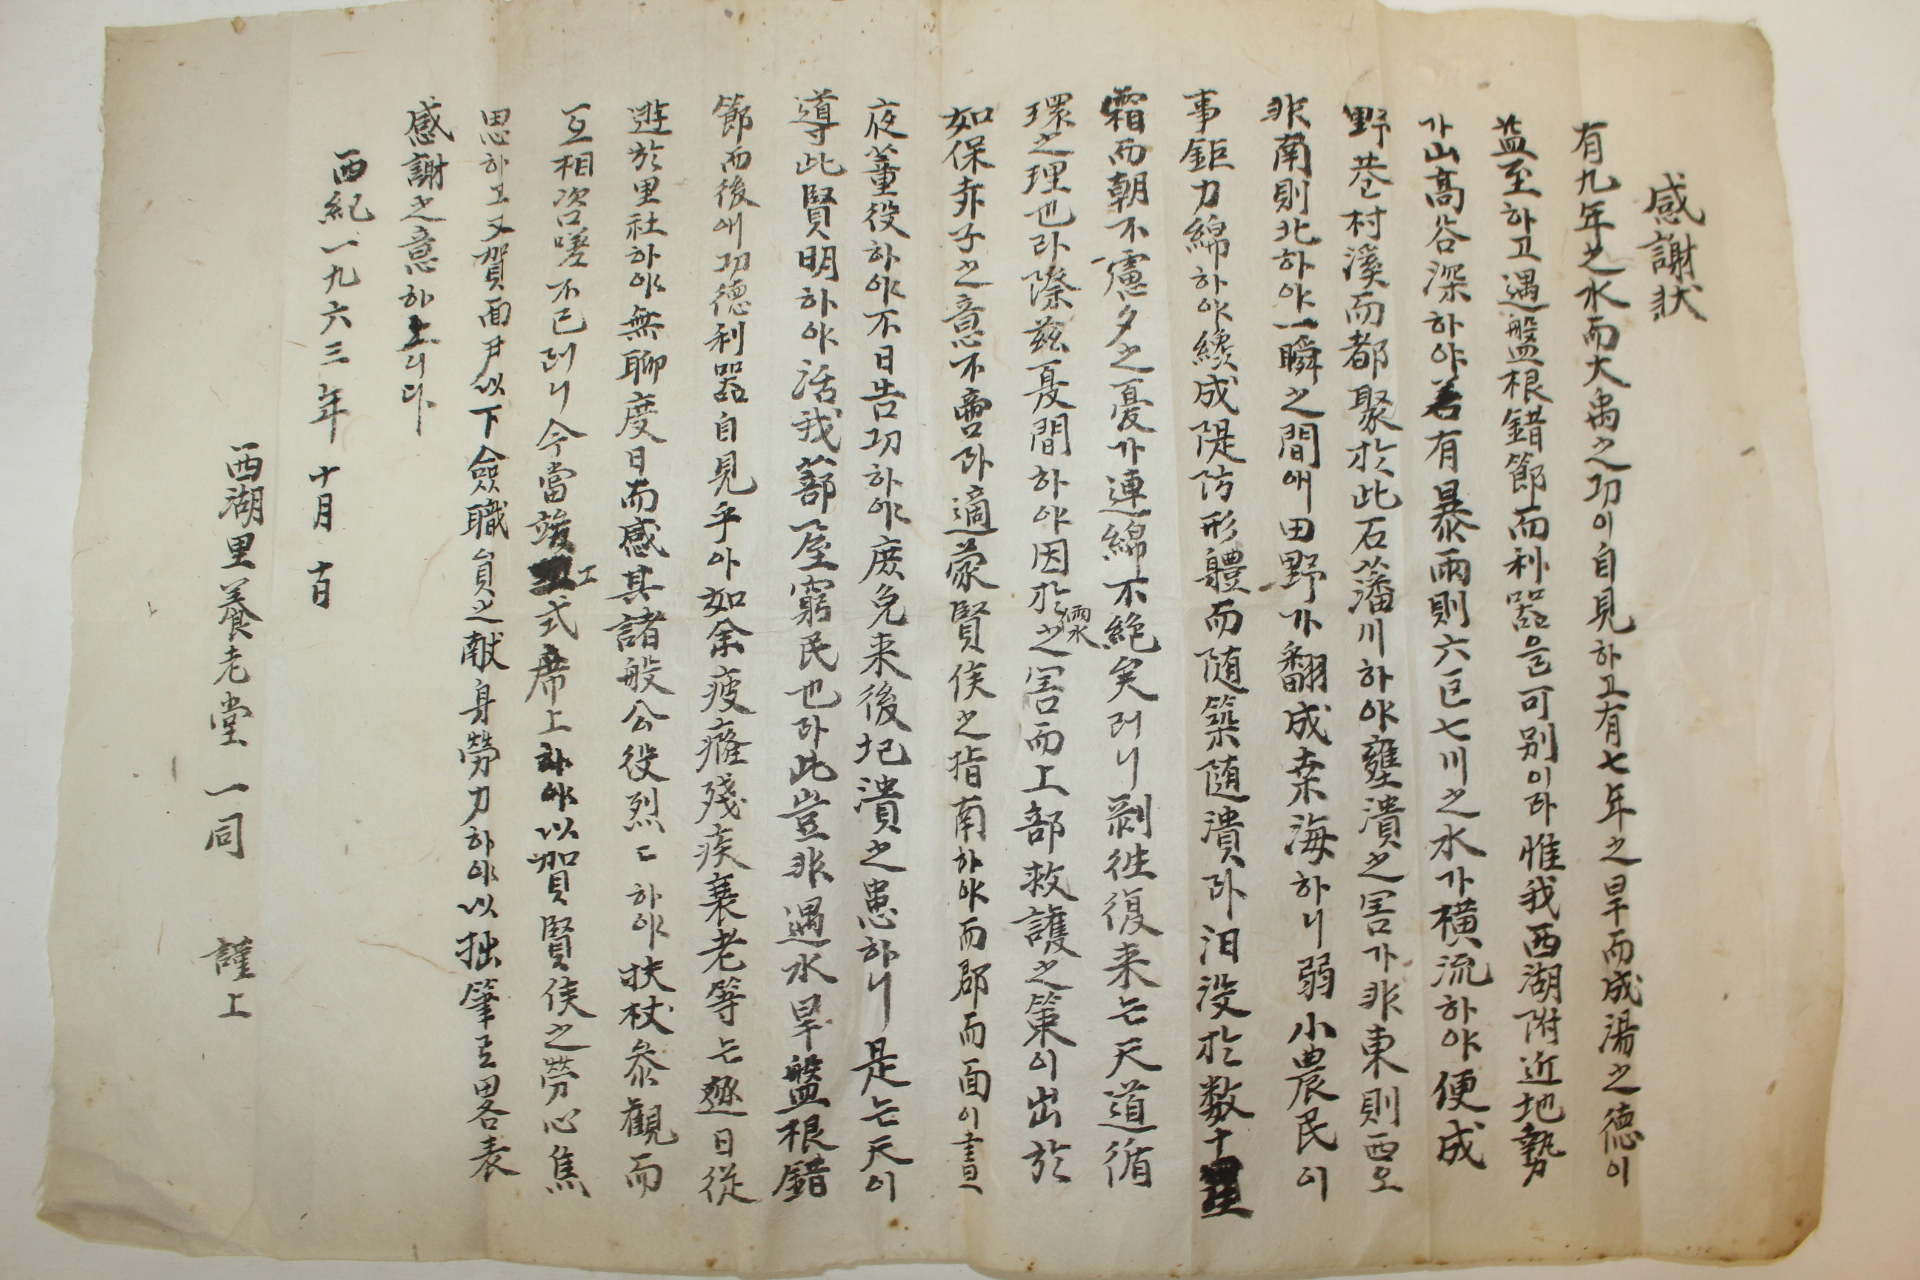 感謝狀
有九年之水而大禹之功이自見하고有七年之旱而成湯之德이
益至하고遇盤根錯節而利器을可別이라惟我西湖附近地勢
가山高谷深하야若有暴雨則六巨七川之水가橫流하야便成
野巷村溪而都聚於此石藩川하야壅潰之害가非東則西오
非南則北하야一瞬之間애田野가翻成桑海하니弱小農民이
事鉅力綿하야纔成隄防形軆而随築随潰라汨没於数十
霜而朝不慮夕之憂가連綿不絶矣러니剝徃復来는天道循
環之理也라際玆夏間하야因於雨水之害而上部救護之策이出於
如保赤子之意不啻라適蒙賢侯之指南하야而郡而面이晝
夜董役하야不日告功하야庶免来後圮潰之患하니是는天이
導此賢明하야活我蔀屋窮民也라此豈非遇水旱盤根錯
節而後애功德利器自見乎아如余疲癃殘疾衰老等는逐日從
遊於里社하야無聊度日而感其諸般公役烈〻하야扶杖參觀而
互相咨嗟不已러니今當竣工式席上하야以賀賢侯之勞心焦
思하고又賀面尹以下僉職員之献身勞力하야以拙筆로畧表
感謝之意하노니다
西紀一九六三年十月十日
西湖里養老堂一同 謹上